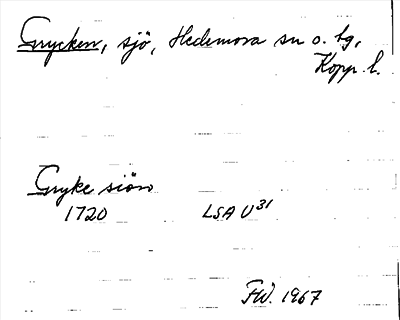 Grycken, sjö, Hedemora sn o. tg,
Kopp. l.
Gryke siön
1720 LSA U³¹
FW. 1967